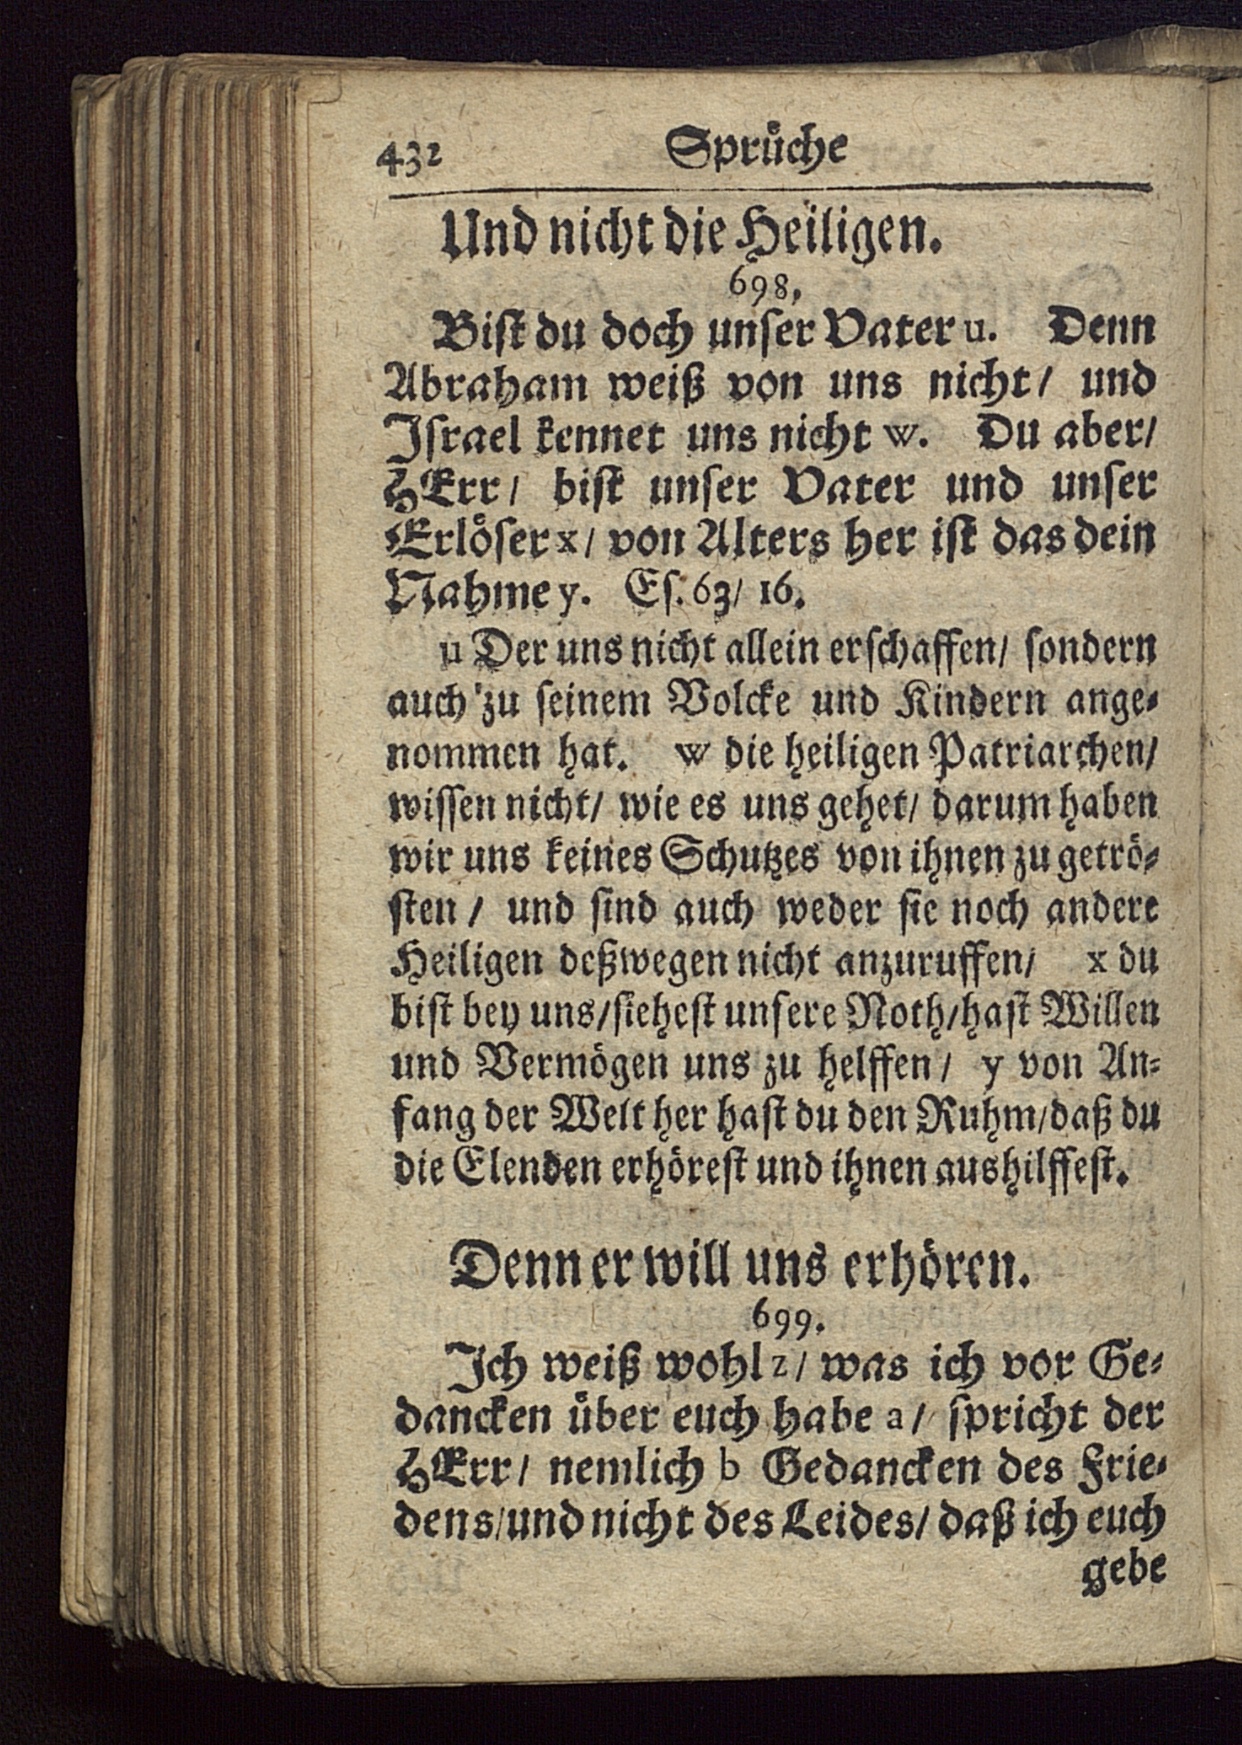 432 Sprüche
Und nicht die Heiligen.
698.
Bist du doch unser Vater u. Denn
Abraham weiß von uns nicht/ und
Israel kennet uns nicht w. Du aber/
HErr/ bist unser Vater und unser
Erlöser x/ von Alters her ist das dein
Nahme y. Es. 63/ 16.
u Der uns nicht allein erschaffen/ sondern
auch zu seinem Volcke und Kindern ange-
nommen hat. w die heiligen Patriarchen/
wissen nicht/ wie es uns gehet/ darum haben
wir uns keines Schutzes von ihnen zu getrö-
sten / und sind auch weder sie noch andere
Heiligen deßwegen nicht anzuruffen/ x du
bist bey uns/siehest unsere Noth/hast Willen
und Vermögen uns zu helffen/ y von An-
fang der Welt her hast du den Ruhm/daß du
die Elenden erhörest und ihnen aushilffest.
Denn er will uns erhören.
699.
Ich weiß wohl z/ was ich vor Ge-
dancken über euch habe a/ spricht der
HErr/ nemlich b Gedancken des Frie-
dens/und nicht des Leides/ daß ich euch
gebe